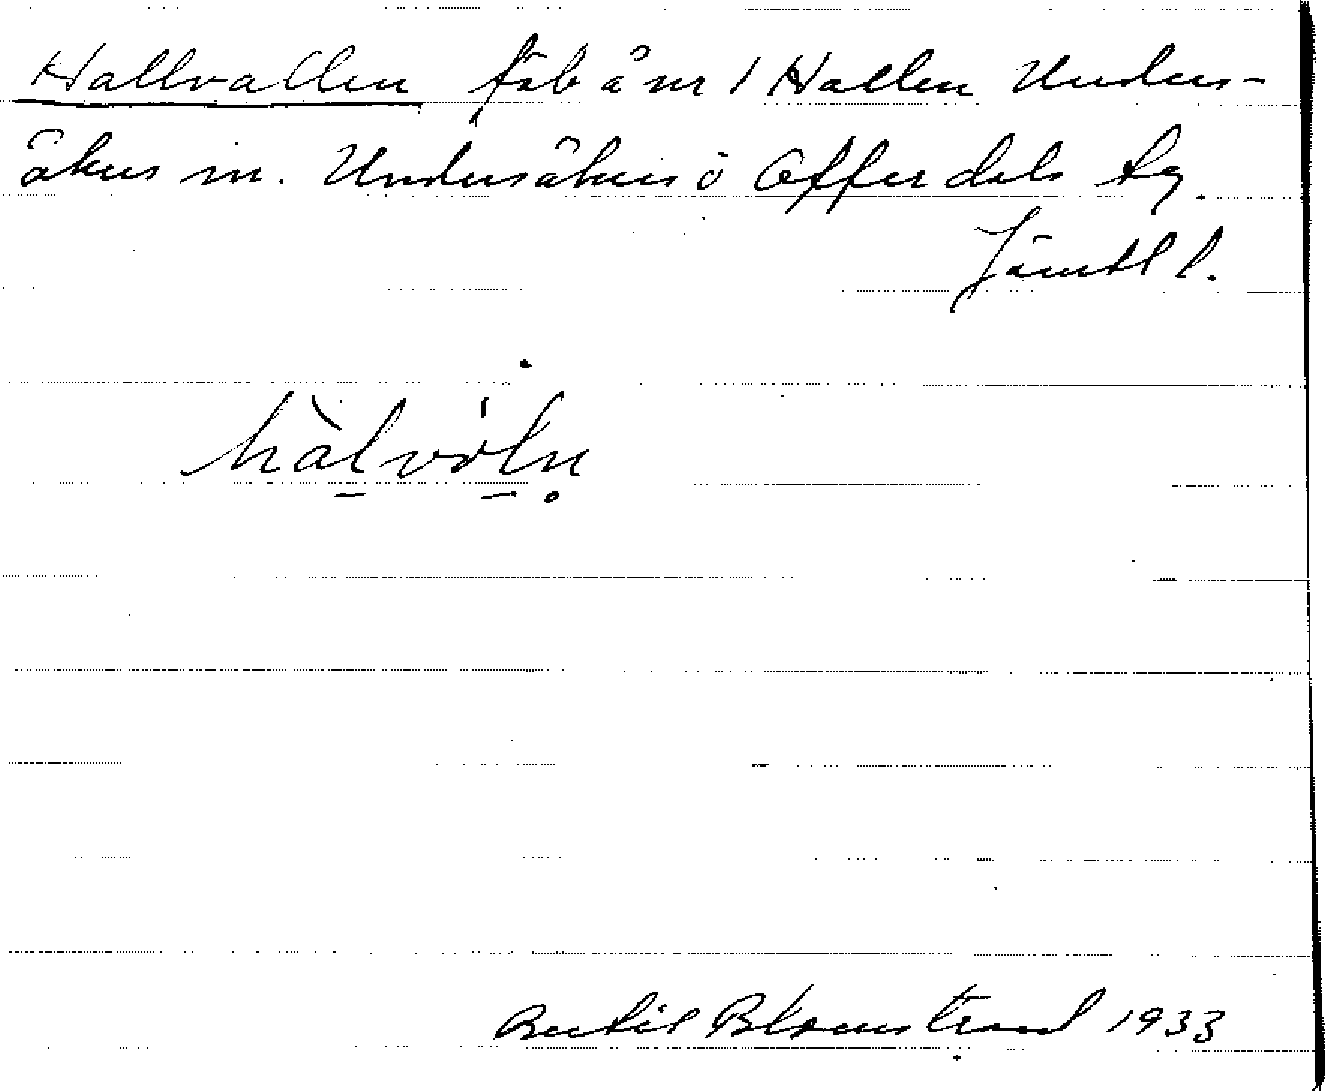 Hallvallen fäb å nr 1 Hallen Unders-
åkers sn. Undersåkers o Offerdals tg.
Jämtl l.
hàlvöln
Bertil Blomstrand 1933